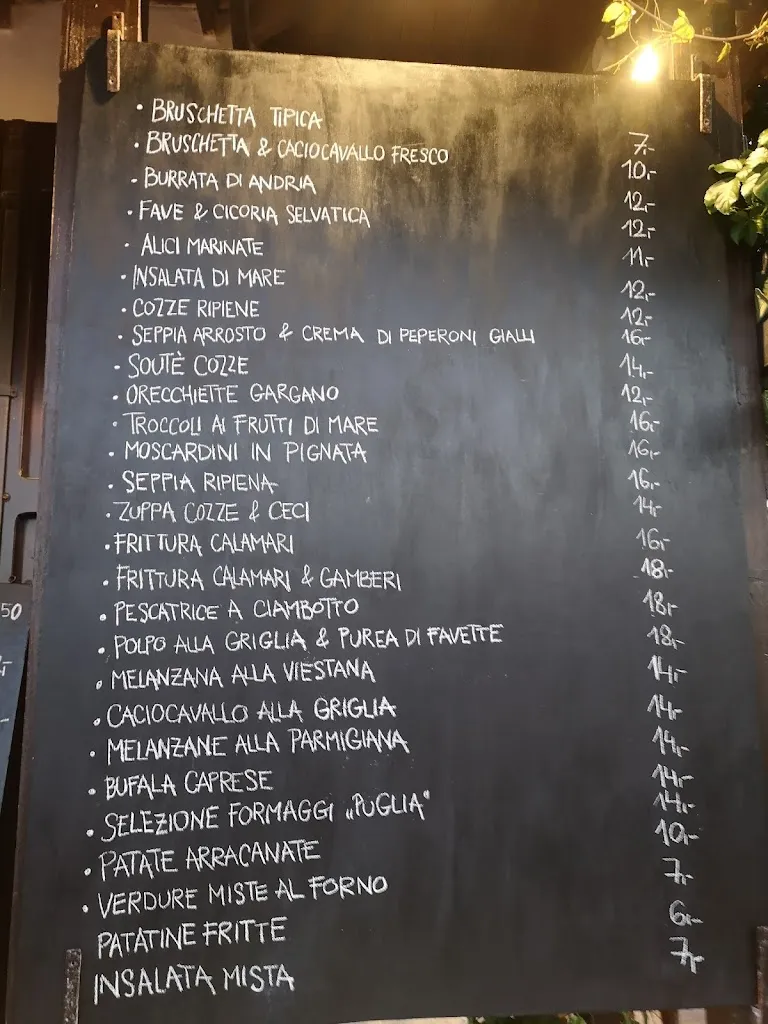 • BRUSCHETTA TIPICA 7,-
• BRUSCHETTA & CACIOCAVALLO FRESCO 10,-
• BURRATA DI ANDRIA 12,-
• FAVE & CICORIA SELVATICA 12,-
• ALICI MARINATE 11,-
• INSALATA DI MARE 12,-
• COZZE RIPIENE 12,-
• SEPPIA ARROSTO & CREMA DI PEPERONI GIALLI 16,-
• SOUTÈ COZZE 14,-
• ORECCHIETTE GARGANO 12,-
• TROCCOLI AI FRUTTI DI MARE 16,-
• MOSCARDINI IN PIGNATA 16,-
• SEPPIA RIPIENA 16,-
• ZUPPA COZZE & CECI 14,-
• FRITTURA CALAMARI 16,-
• FRITTURA CALAMARI & GAMBERI 18,-
• PESCATRICE A CIAMBOTTO 18,-
• POLPO ALLA GRIGLIA & PUREA DI FAVETTE 18,-
• MELANZANA ALLA VIESTANA 14,-
• CACIOCAVALLO ALLA GRIGLIA 14,-
• MELANZANE ALLA PARMIGIANA 14,-
• BUFALA CAPRESE 14,-
• SELEZIONE FORMAGGI „PUGLIA“ 14,-
• PATATE ARRACANATE 10,-
• VERDURE MISTE AL FORNO 7,-
PATATINE FRITTE 6,-
INSALATA MISTA 7,-
50